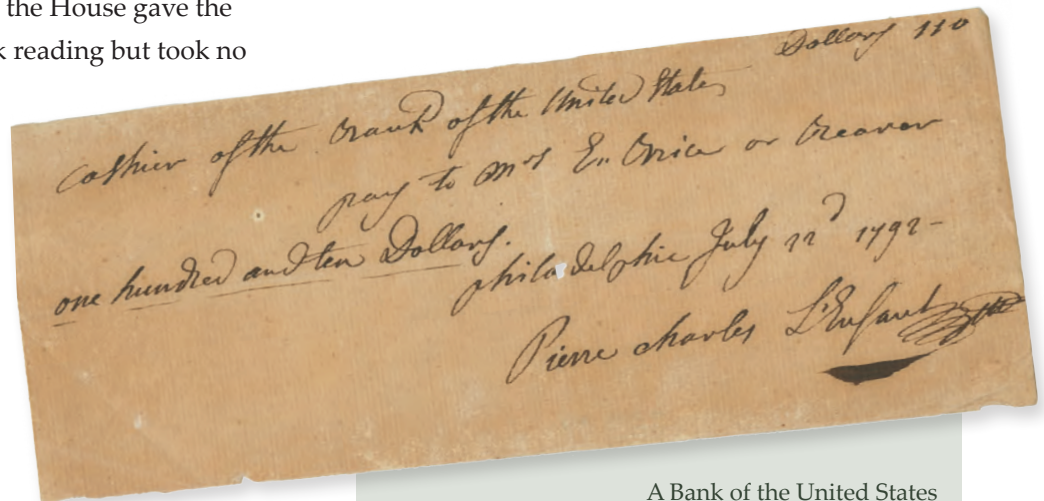 the House gave the
reading but took no
Dollars 110
Cashier of the Bank of the United States
pay to Mrs E.. or Bearer
one hundred and ten Dollars.
philadelphie July 22d 1792-
Pierre charles L'Enfant
A Bank of the United States